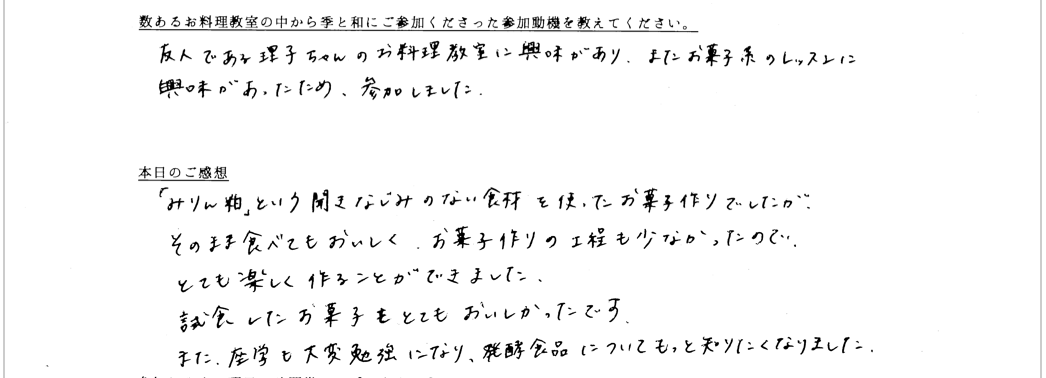 数あるお料理教室の中から季と和にご参加くださった参加動機を教えてください。
友人である理子ちゃんのお料理教室に興味があり、またお菓子系のレッスンに
興味があったため、参加しました。
本日のご感想
「みりん粕」という聞きなじみのない食材を使ったお菓子作りでしたが、
そのまま食べてもおいしく、お菓子作りの工程も少なかったので、
とても楽しく作ることができました。
試食したお菓子もとてもおいしかったです。
また、座学も大変勉強になり、発酵食品についてもっと知りたくなりました。